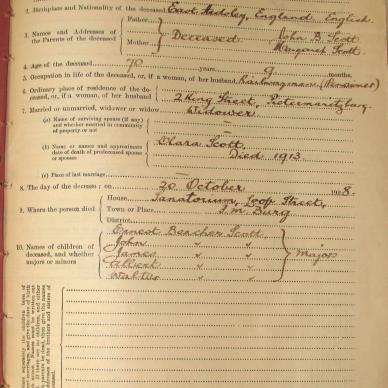 2. Birthplace and Nationality of the deceased East Hadsley, England English
3. Names and Addresses of the Parents of the deceased
Father... Deceased John B Scott
Mother... Margaret Scott
4. Age of the deceased 70 years 9 months.
5. Occupation in life of the deceased, or, if a woman, of her husband Railwayman (Pensioner)
6. Ordinary place of residence of the deceased, or, if a woman, of her husband 2 King Street, Pietermaritzburg
7. Married or unmarried, widower or widow Widower
(a) Name of surviving spouse (if any) and whether married in community of property or not —
(b) Name or names and approximate date of death of predeceased spouse or spouses Clara Scott
Died 1913.
(c) Place of last marriage —
8. The day of the decease; on 20 October 1938.
9. Where the person died
House Sanatorium, Loop Street,
Town or Place P.M. Burg
District
10. Names of children of deceased, and whether majors or minors
Ernest Bercher Scott
John " "
James " "
Albert " "
Walter " "
Majors